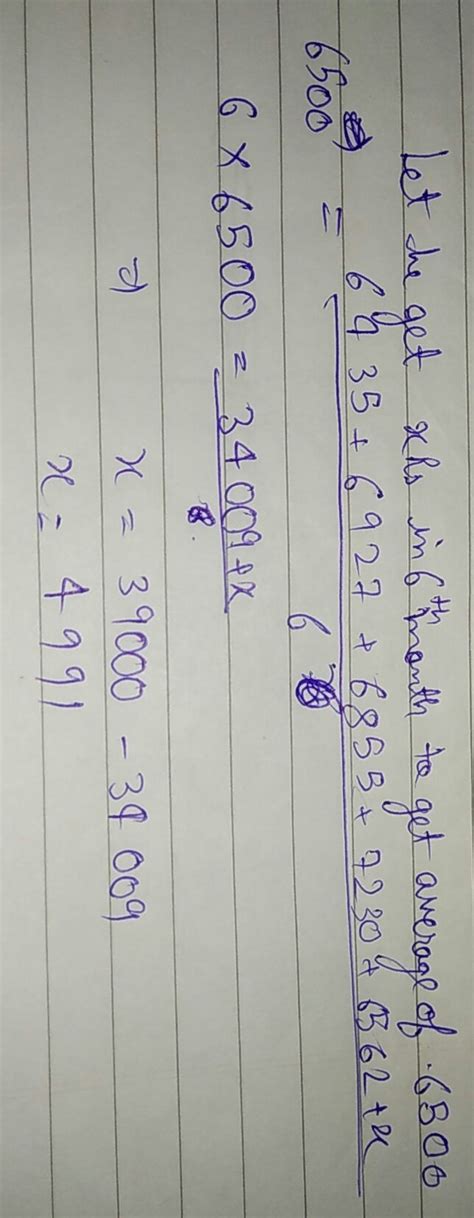 Let he get x Rs in 6th month to get average of 6500
6500 = 6435 + 6927 + 6855 + 7230 + 6562 + x
6
6 × 6500 = 34009 + x
⇒ x = 39000 - 34009
x = 4991